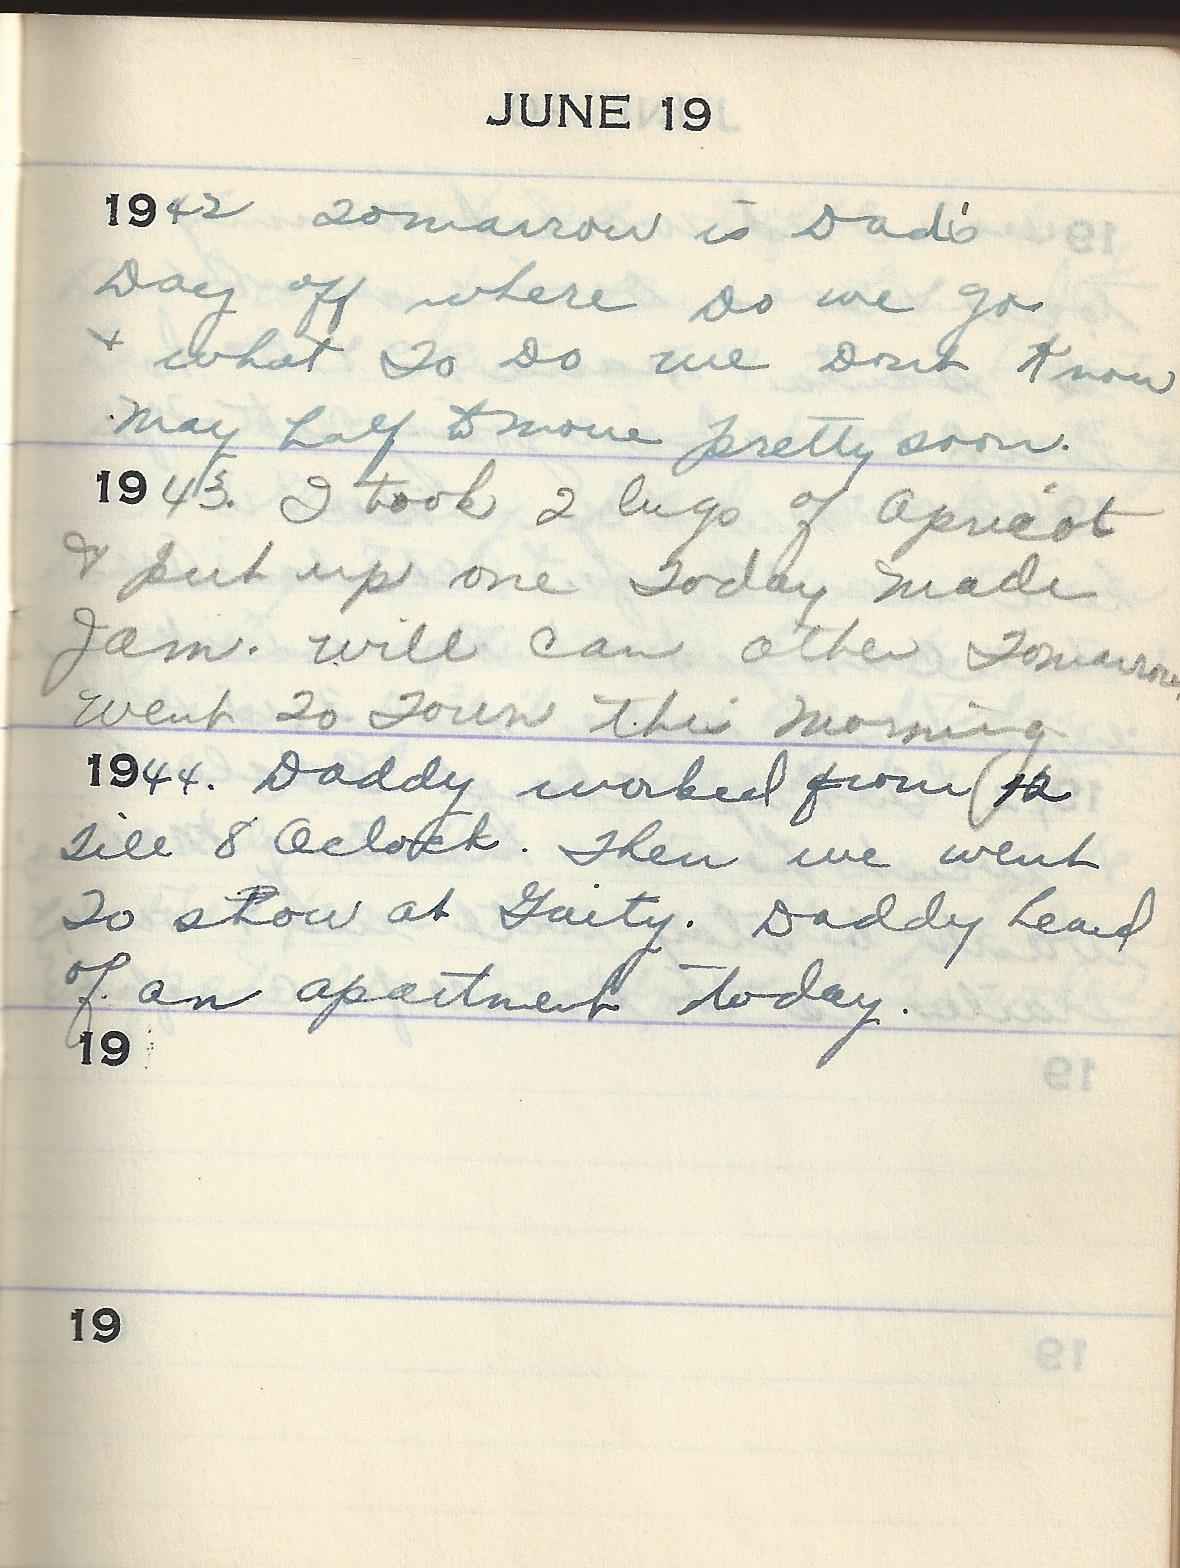 JUNE 19
1942 Tomarrow is Dad's
Day off where Do we go
& what To Do we Dont Know
May half to move pretty soon.
1943. I took 2 lugs of Apricot
& put up one Today made
Jam. will can other Tomarrow
went To Town this Morning
1944. Daddy worked from 12
Till 8 Oclock. Then we went
To show at Gaity. Daddy heard
of an apartment today.
19
19